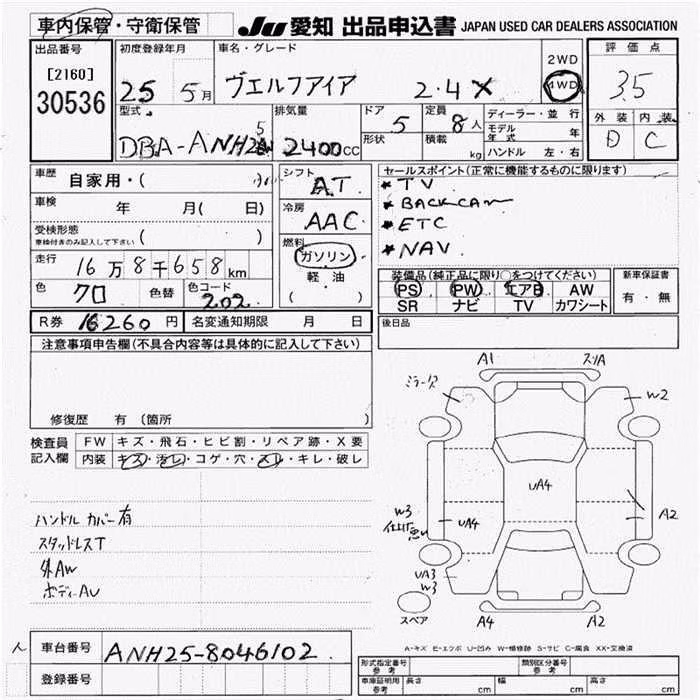 車内保管・守衛保管
JU 愛知 出品申込書 JAPAN USED CAR DEALERS ASSOCIATION
出品番号
[2160]
30536
初度登録年月
25 5月
車名・グレード
ヴェルファイア 2.4X
2WD
4WD
評価点
3.5
外装 内装
D C
型式
DBA-ANH25W
排気量
2400cc
ドア
5
形状
定員
8人
積載
kg
ディーラー・並行
モデル年式 年
ハンドル 左・右
車歴
自家用・(
車検 年 月( 日)
受検形態
車検付きのみ記入して下さい ( )
走行
16万8千658km
色
クロ
色替
色コード
202
シフト
AT
冷房
AAC
燃料
ガソリン
軽・油
( )
セールスポイント(正常に機能するものに限ります)
★TV
★BACKCAM
★ETC
★NAV
装備品(純正品に限り○をつけてください)
PS PW エアB AW
SR ナビ TV カワシート
新車保証書
有・無
R券 16260円 名変通知期限 月 日
後日品
注意事項申告欄(不具合内容等は具体的に記入して下さい)
修復歴 有 (箇所 )
検査員記入欄
FW キズ・飛石・ヒビ割・リペア跡・X要
内装 キズ・汚レ・コゲ・穴・スレ・キレ・破レ
ハンドルカバー有
スタッドレスT
外AW
ボディーAU
A1
スリA
ミラーウス
W2
UA4
W3
仕上げ悪い
UA4
A2
UA3
W3
スペア
A4
A2
A-キズ E-エクボ U-凹み W-補修跡 S-サビ C-腐食 XX-交換済
人
車台番号 ANH25-8046102
登録番号
形式指定番号
参考
類別区分番号
参考
車庫証明用
参考
長さ cm 幅 cm 高さ cm